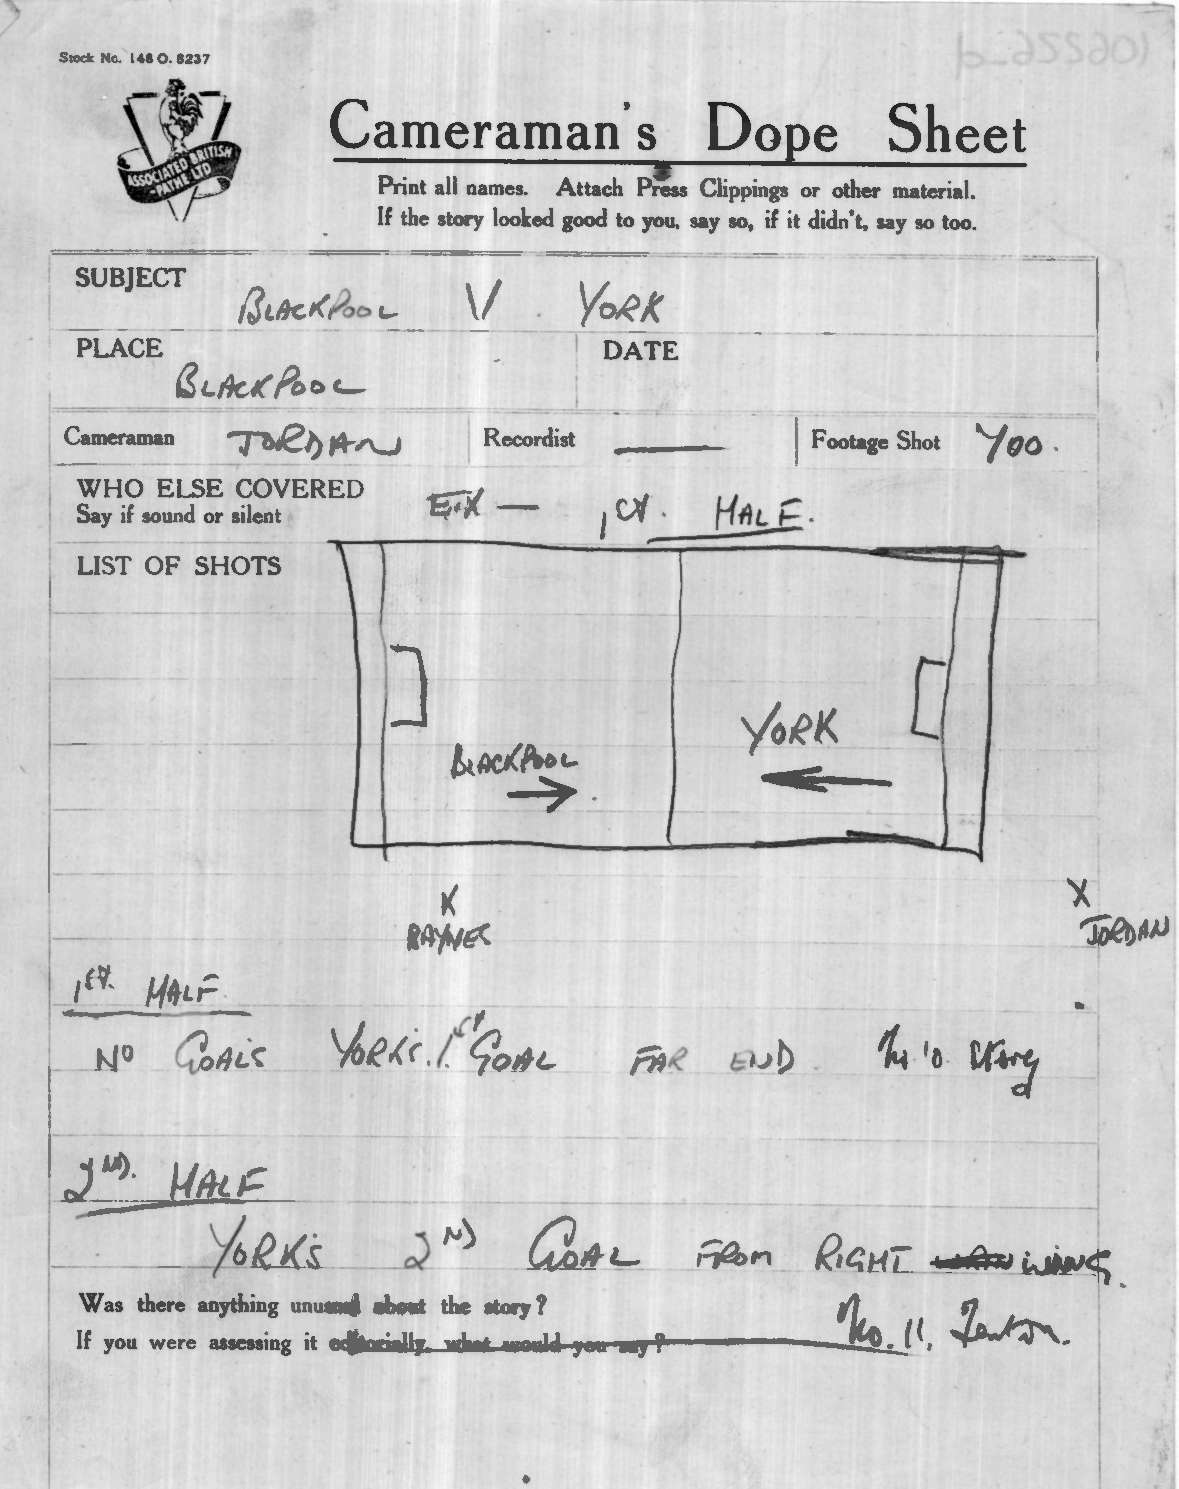 Stock No. 148 O. 8237
ASSOCIATED BRITISH
PATHE LTD
Cameraman's Dope Sheet
Print all names. Attach Press Clippings or other material.
If the story looked good to you, say so, if it didn't, say so too.
SUBJECT
BLACKPOOL V YORK
PLACE
BLACKPOOL
DATE
Cameraman JORDAN
Recordist —
Footage Shot 400.
WHO ELSE COVERED
Say if sound or silent
1st. HALF.
LIST OF SHOTS
BLACKPOOL
YORK
X
RAYNES
X
JORDAN
1st. HALF.
NO GOALS YORK'S 1st GOAL FAR END
2ND. HALF
YORK'S 2ND GOAL FROM RIGHT WING.
Was there anything unusual about the story?
No. 11, Fenton.
If you were assessing it editorially, what would you say?